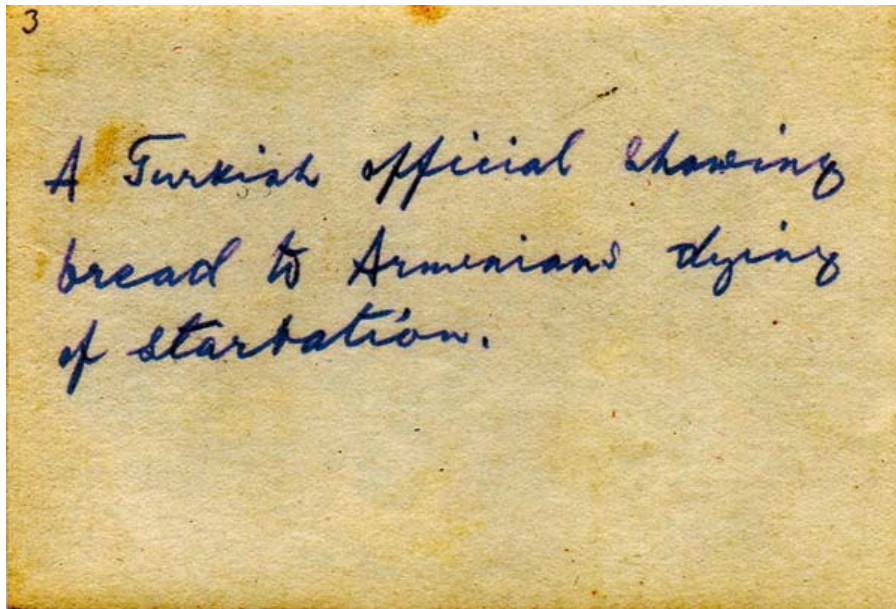 3
A Turkish official showing
bread to Armenians dying
of starvation.